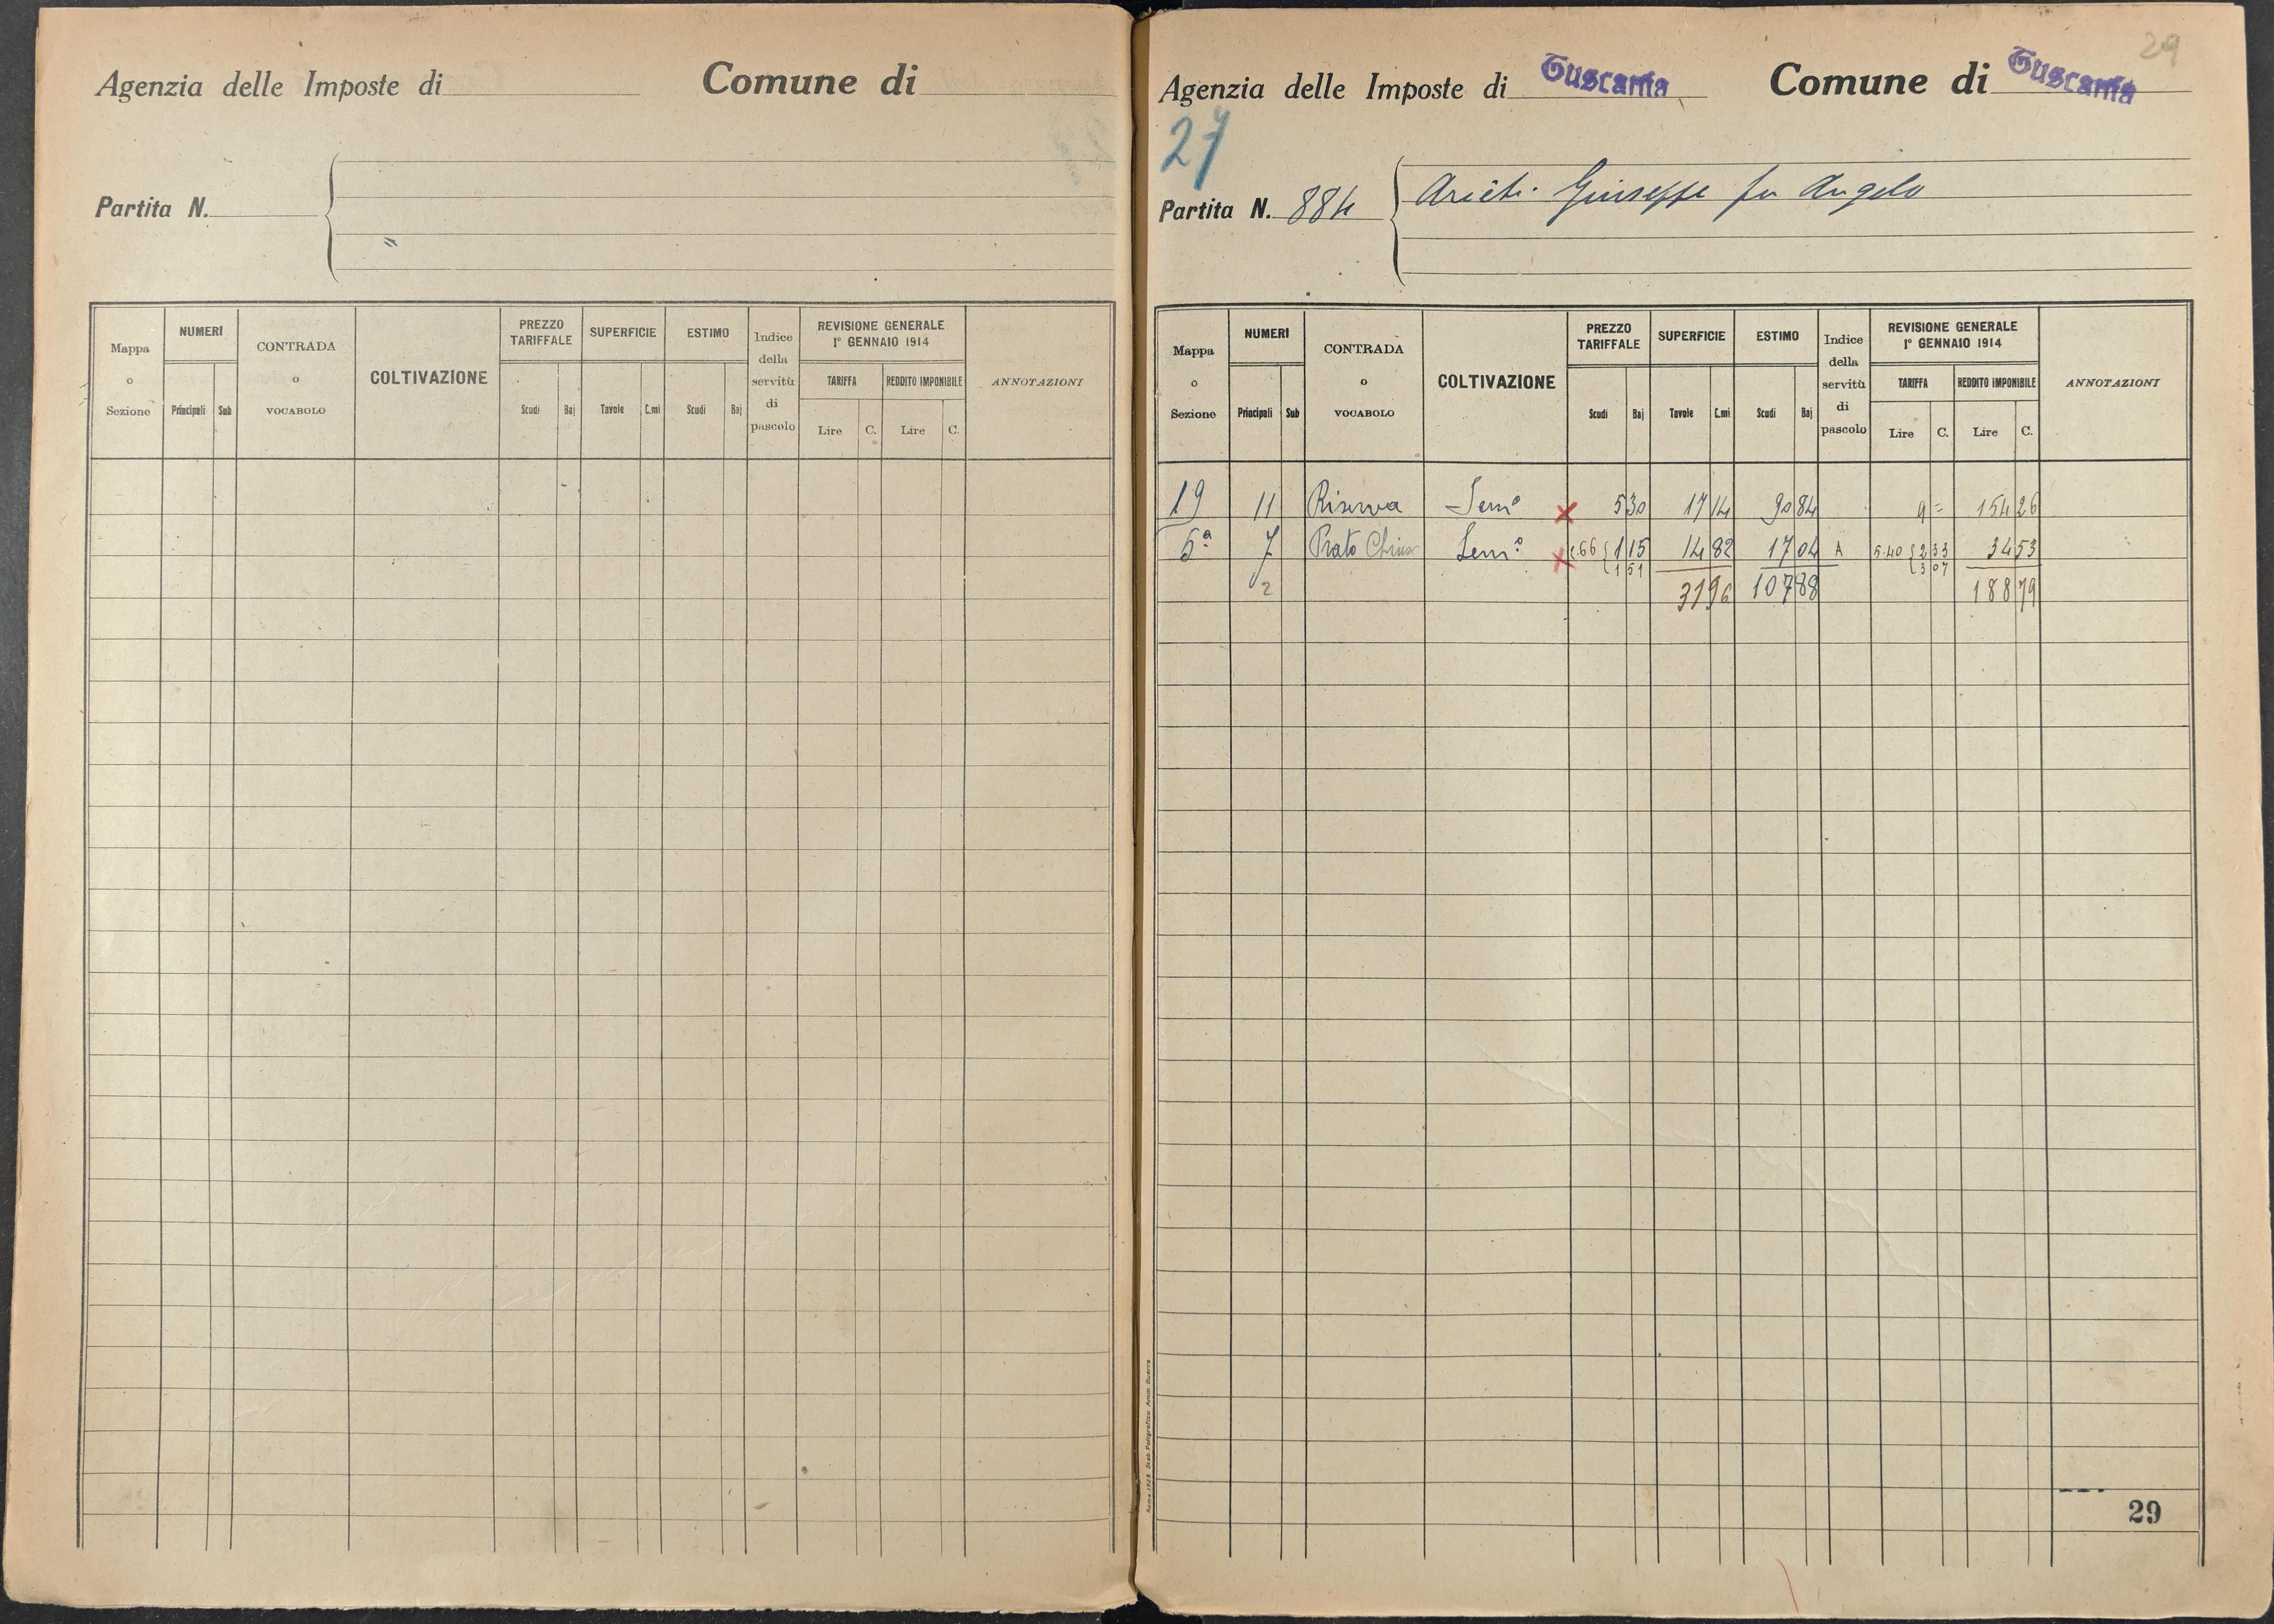 Agenzia delle Imposte di
Comune di
Partita N.
Mappa o Sezione
NUMERI
Principali
Sub
CONTRADA o VOCABOLO
COLTIVAZIONE
PREZZO TARIFFALE
Scudi
Baj
SUPERFICIE
Tavole
C.mi
ESTIMO
Scudi
Baj
Indice della servitù di pascolo
REVISIONE GENERALE
1º GENNAIO 1914
TARIFFA
Lire
C.
REDDITO IMPONIBILE
Lire
C.
ANNOTAZIONI
29
Agenzia delle Imposte di Tuscania
Comune di Tuscania
27
Partita N. 884
Giuseppe fu Angelo
Mappa o Sezione
NUMERI
Principali
Sub
CONTRADA o VOCABOLO
COLTIVAZIONE
PREZZO TARIFFALE
Scudi
Baj
SUPERFICIE
Tavole
C.mi
ESTIMO
Scudi
Baj
Indice della servitù di pascolo
REVISIONE GENERALE
1º GENNAIO 1914
TARIFFA
Lire
C.
REDDITO IMPONIBILE
Lire
C.
ANNOTAZIONI
19 11 Riserva Semº x 5 30 17 14 90 84 9 = 154 26
5ª 7 Prato Chiuso Semº x 2.66 { 1 15 14 82 17 04 A 5.40 { 2 33 34 53
1 51 3 07
2 31 96 107 88 188 79
Roma 1923 Stab. Poligrafico Amm. Guerra
29